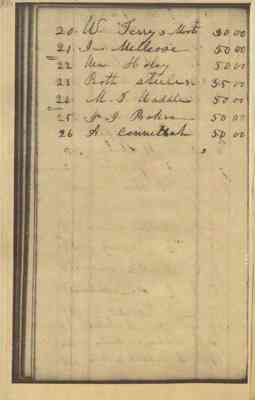 20 W. Terry & Mott 30 00
21 J Mellrose 50 00
22 Wm Haley 50 00
23 Roth 35 00
24 M. T. Waddle 50 00
25 J. J. Baker 50 00
26 A. 50 00